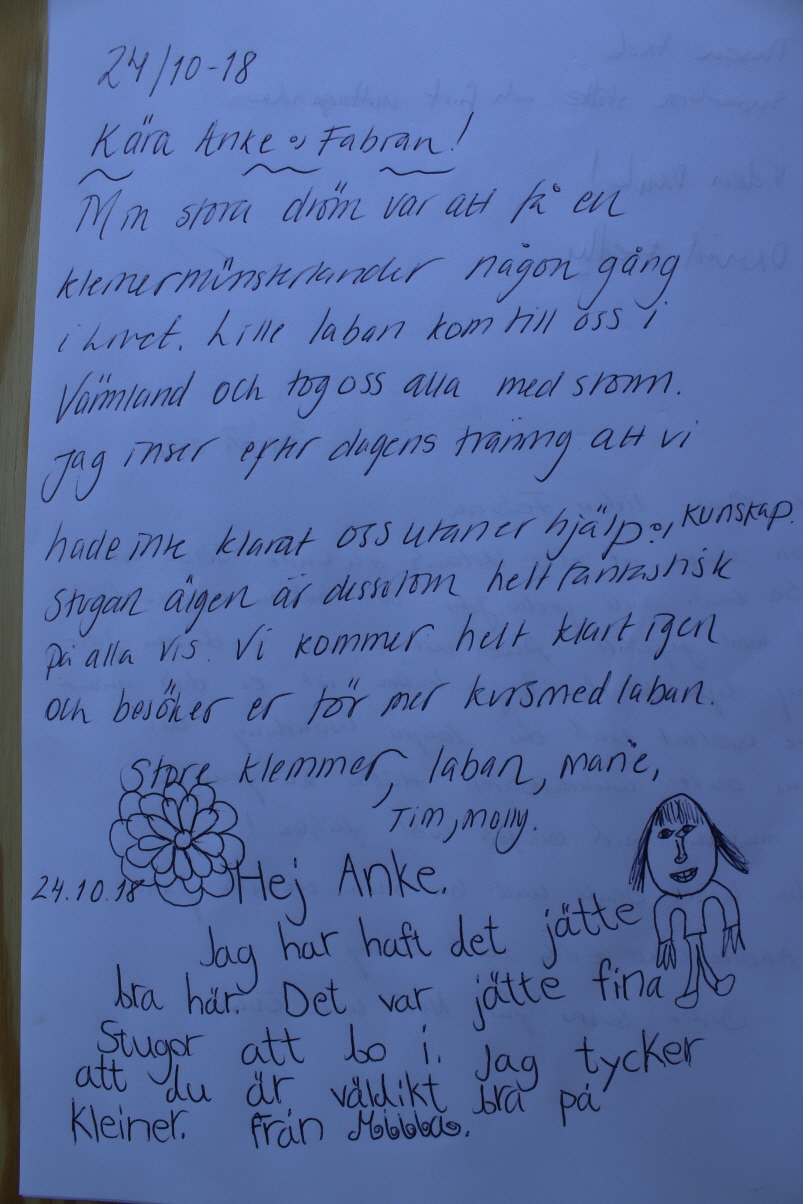 24/10-18
Kära Anke o, Fabian!
Min stora dröm var att få en
kleinermünsterländer någon gång
i livet. Lille laban kom till oss i
Värmland och tog oss alla med storm.
Jag inser efter dagens träning att vi
hade inte klarat oss utan er hjälp o, kunskap.
Stugan äigen är dessutom helt fantastisk
på alla vis. Vi kommer helt klart igen
och besöker er för mer kurs med laban.
Store klemmer, laban, marie,
Tim, molly.
24.10.18 Hej Anke.
Jag har haft det jätte
bra här. Det var jätte fina
Stugor att bo i. Jag tycker
att du är väldikt bra på
Kleiner. från